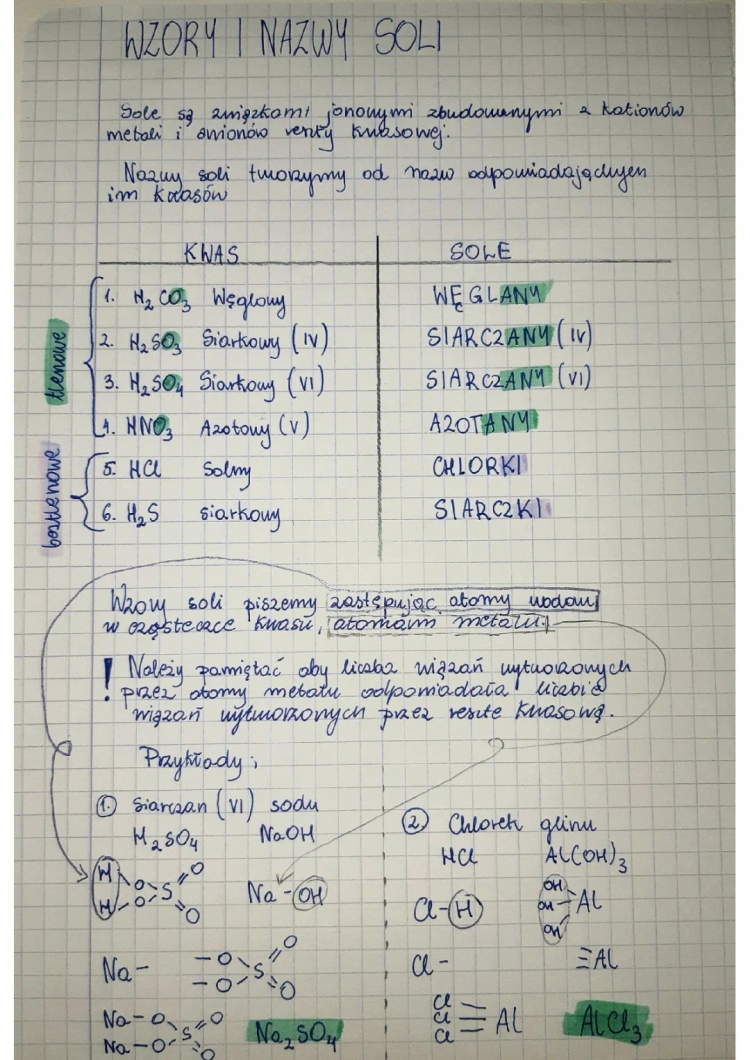 WZORY I NAZWY SOLI
Sole są związkami jonowymi zbudowanymi z kationów
metali i anionów reszty kwasowej.
Nazwy soli tworzymy od nazw odpowiadających
im kwasów
KWAS SOLE
1. H2CO3 Węglowy WĘGLANY
2. H2SO3 Siarkowy (IV) SIARCZANY (IV)
3. H2SO4 Siarkowy (VI) SIARCZANY (VI)
4. HNO3 Azotowy (V) AZOTANY
5. HCl Solny CHLORKI
6. H2S siarkowy SIARCZKI
tlenowe
beztlenowe
Wzory soli piszemy zastępując atomy wodoru
w cząsteczce kwasu, atomami metalu.
! Należy pamiętać aby liczba wiązań wytworzonych
przez atomy metalu odpowiadała liczbie
wiązań wytworzonych przez resztę kwasową.
Przykłady:
1. Siarczan (VI) sodu
H2SO4 NaOH
H-O
H-O S=O =O
Na-OH
Na-
-O
-O S=O =O
Na-O
Na-O S=O =O
Na2SO4
2 Chlorek glinu
HCl Al(OH)3
Cl-H
OH
OH-Al
OH
Cl- ≡Al
Cl
Cl ≡ Al
Cl
AlCl3